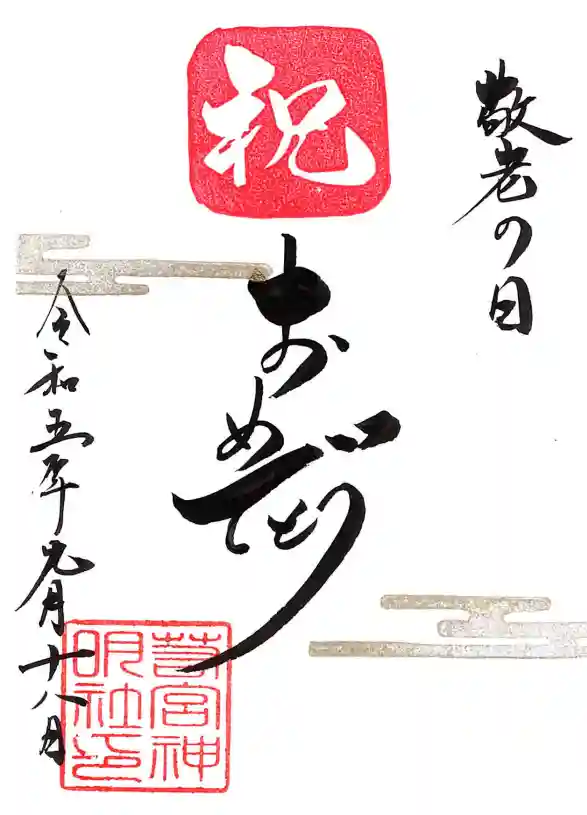 敬老の日
祝
おめでとう
令和五年九月十八日
宮神
明社印